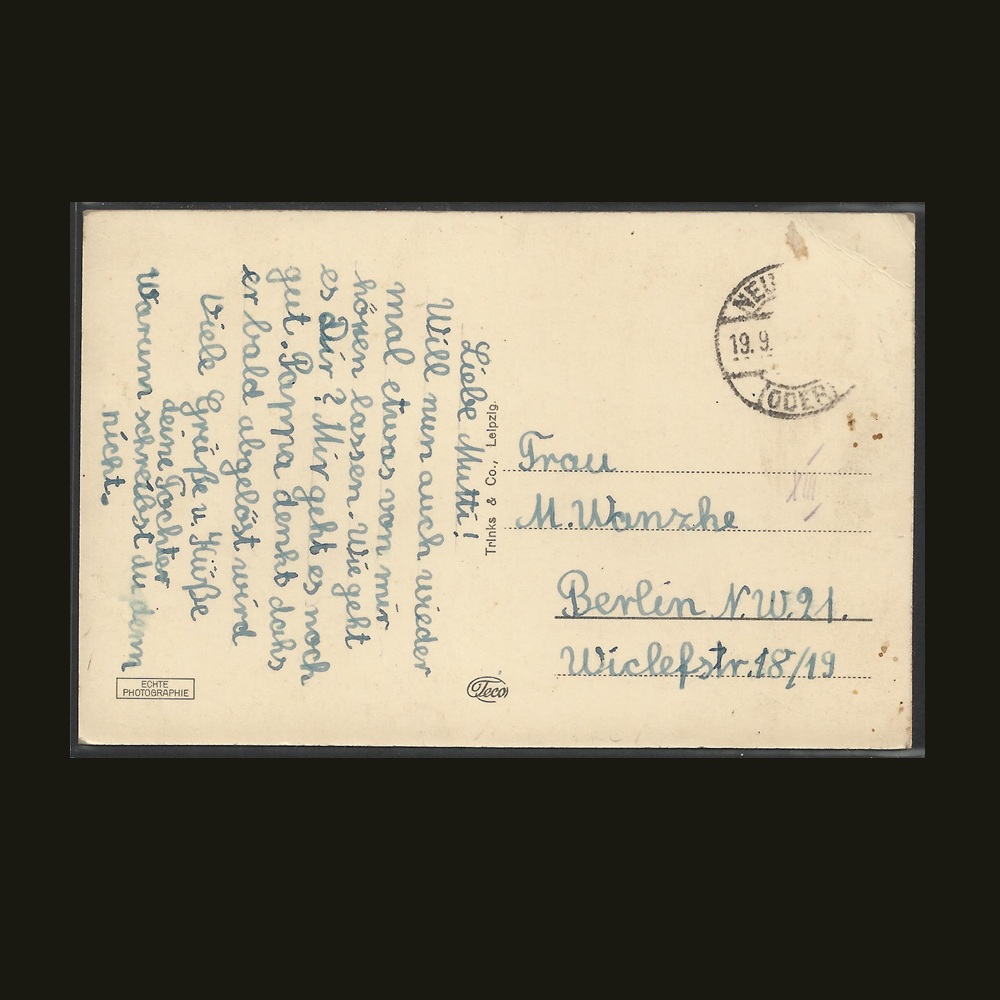 Liebe Mutti!
Will nun auch wieder
mal etwas von mir
hören lassen. Wie geht
es Dir? Mir geht es noch
gut. Pappa denkt dahs
er bald abgelöst wird
Viele Grüße u. Küße
deine Tochter
Warum schreibst du denn
nicht.
Trinks & Co., Leipzig.
ECHTE
PHOTOGRAPHIE
Teco
19.9.
(ODER)
Frau
M. Wanzke
Berlin N.W.21.
Wiclefstr. 18/19